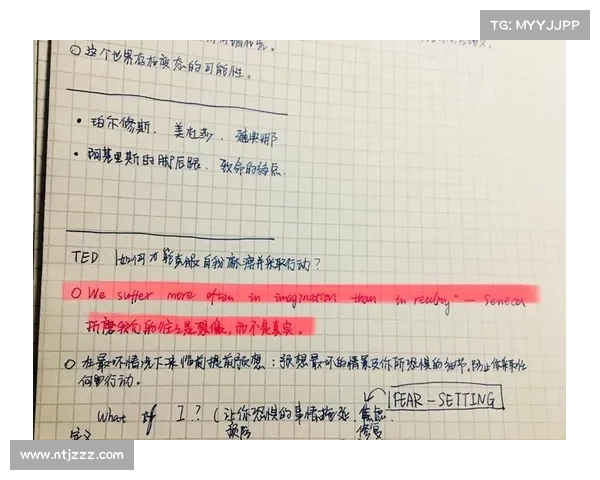 TG: MYYJJPP
○ 这个世界存在变态的可能性。
• 珀尔修斯. 美杜莎. 雅典娜
• 阿基里斯的脚后跟. 致命的弱点.
TED 如何才能克服自我麻痹并采取行动?
○ We suffer more often in imagination than in reality" — Seneca
折磨我们的往往是想像,而不是真实.
○ 在最坏情况下来临前提前预想: 预想最坏的情景及你所恐惧的细节,防止你采取任
何里行动。
FEAR-SETTING
What if I? (让你恐惧的事情 焦虑.
定义 预防 修复
www.ntjzzz.com